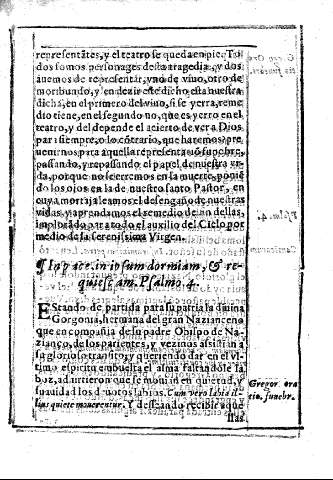 representãtes, y el teatro se queda en pie. To
dos somos personages desta tragedia, y dos
auemos de representar, vno de viuo, otro de
moribundo, y en dezir este dicho esta nuestra
dicha, en el primero del viuo, si se yerra, reme
dio tiene, en el segundo no, que es yerro en el
teatro, y del depende el acierto de ver a Dios
para siempre, o lo cõtrario, que haremos, preuenirnos para aquella representació funebre,
passando, y repassando el papel de nuestra vi-
da, porque no se erremos en la muerte, poniẽ
do los ojos en la de nuestro santo Pastor, en
cuya mortaja leamos el desengaño de nuestras
vidas, y aprendamos el remedio de
implorãdo para todo el auxilio del Cielo por
medio de la serenissima Virgen.
¶ In pace in ipsum dormiam, & re-
quiescam. Psalmo. 4.
EStando de partida para su patria la diuina
Gorgonia, hermana del gran Nazianceno
que en compañia de su padre Obispo de Na-
zianço, de los parientes, y vezinos assistian a
su glorioso transito, y queriendo dar en el vl-
timo espiritu embuelta el alma faltandole la
boz, aduirtieron que se mouian en quietud, y
suauidad los denotos labios. Cum vero labia il-
lius quiete mouerentur. Y desseando recibir aque
llas
Gregor. ora
tio. funebr.